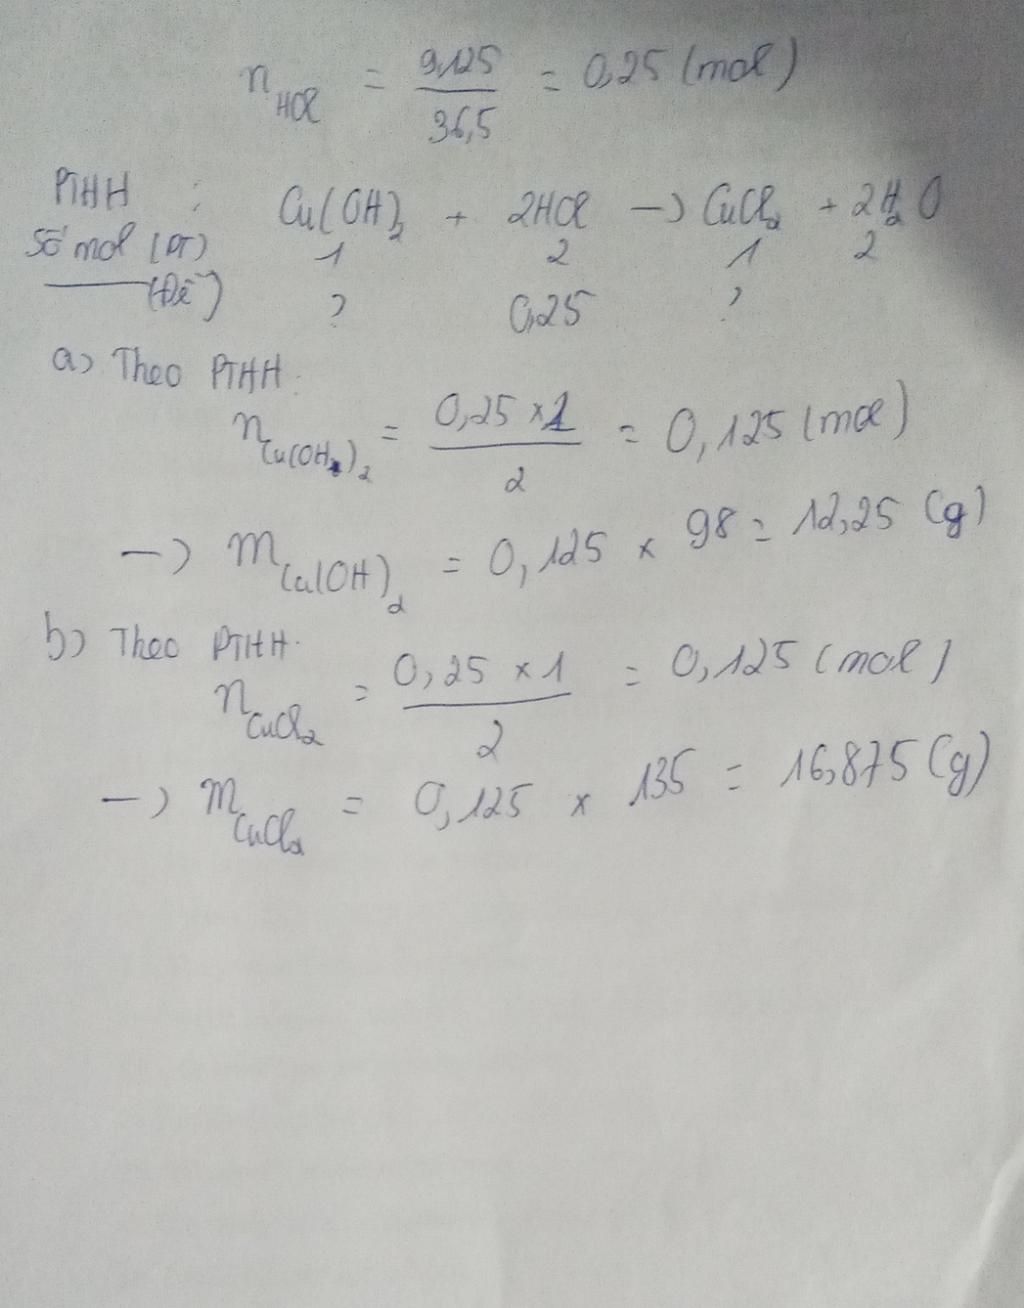 n HCl = 9,125 / 36,5 = 0,25 (mol)
PTHH : Cu(OH)₂ + 2HCl -> CuCl₂ + 2H₂O
Số mol (PT) 1 2 1 2
——— (Đề) ? 0,25 ?
a) Theo PTHH.
n Cu(OH)₂ = 0,25 × 1 / 2 = 0,125 (mol)
-> m Cu(OH)₂ = 0,125 × 98 = 12,25 (g)
b) Theo PTHH.
n CuCl₂ = 0,25 × 1 / 2 = 0,125 (mol)
-> m CuCl₂ = 0,125 × 135 = 16,875 (g)